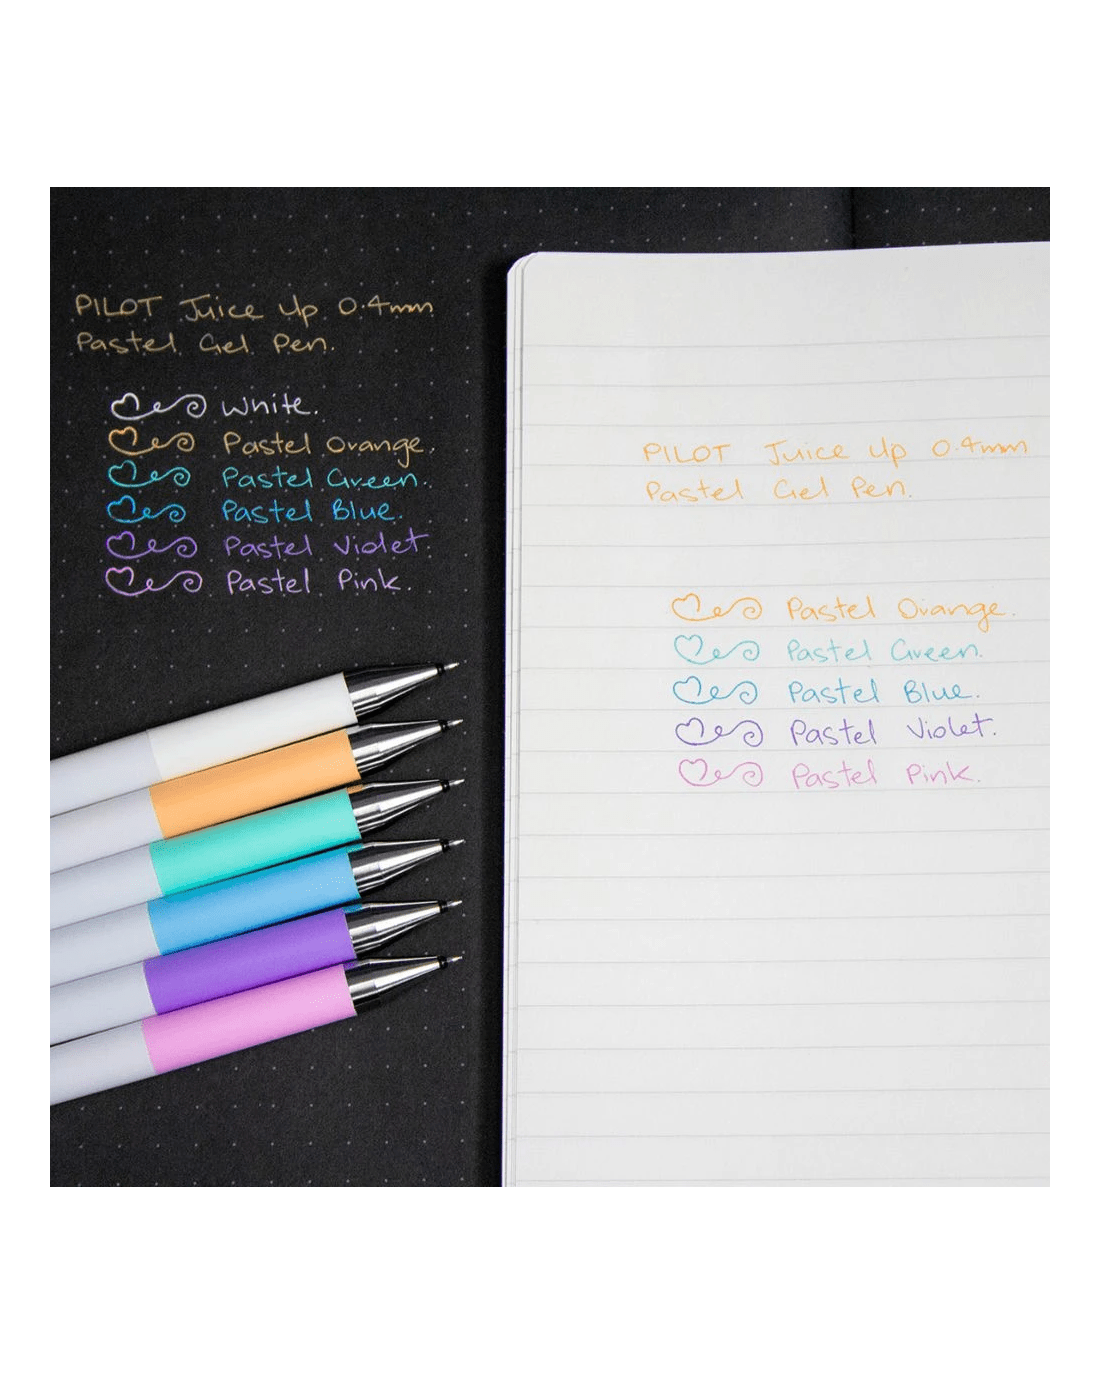 PILOT Juice Up 0.4mm
Pastel Gel Pen.
White.
Pastel Orange.
Pastel Green.
Pastel Blue.
Pastel Violet.
Pastel Pink.
PILOT Juice Up 0.4mm
Pastel Gel Pen.
Pastel Orange.
Pastel Green.
Pastel Blue.
Pastel Violet.
Pastel Pink.